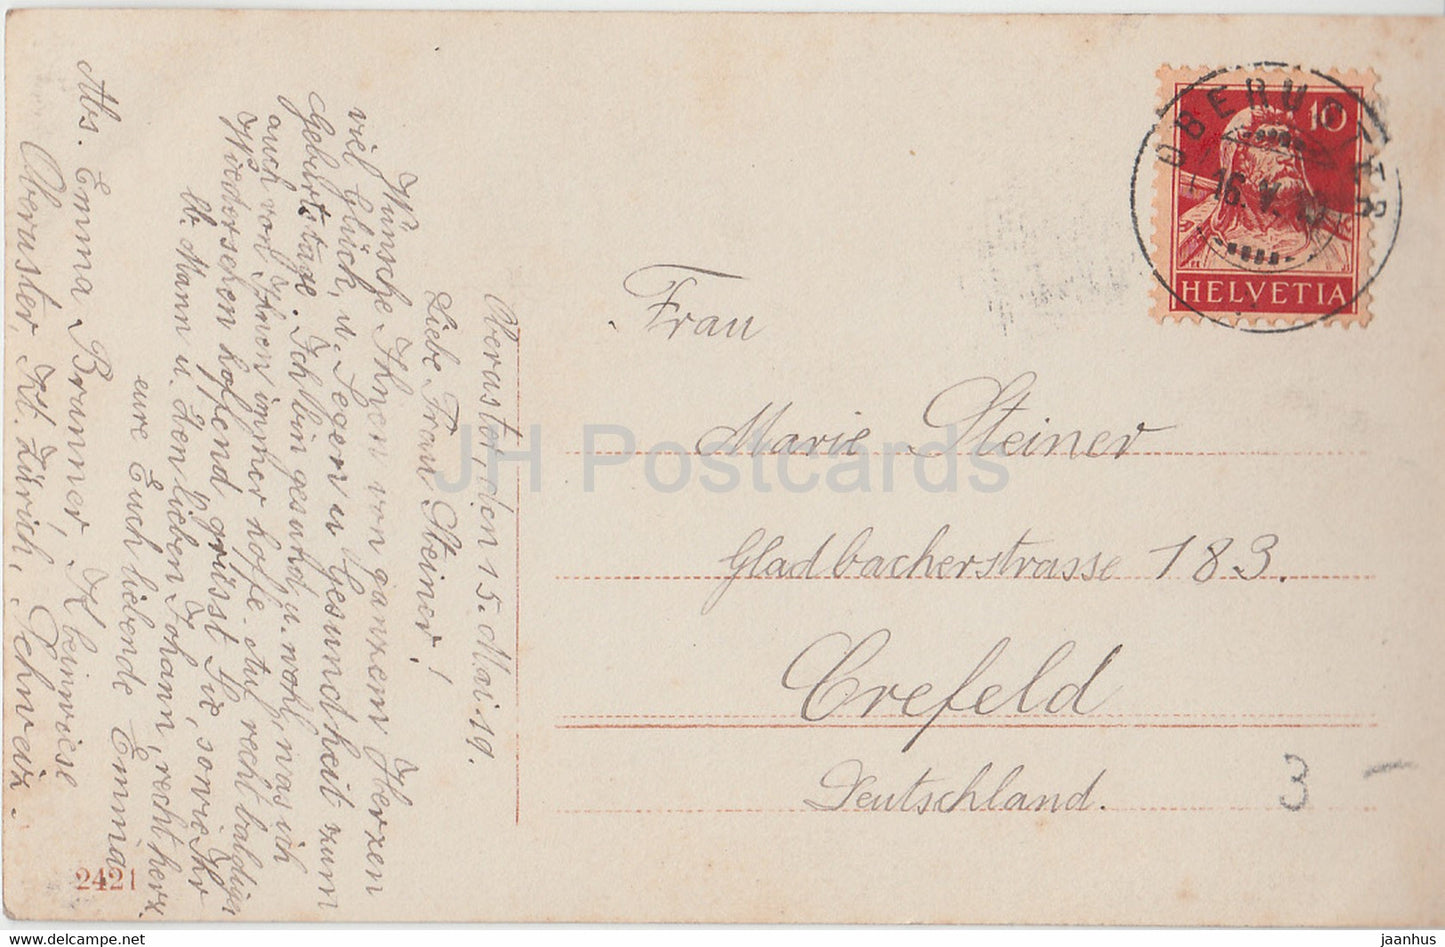 Oberuster, den 15. Mai 19.
Liebe Frau Steiner!
Wünsche Ihnen von ganzem Herzen
viel Glück, u. Segen u Gesundheit zum
Geburtstage. Ich bin gesund u. wohl, was ich
auch von Ihnen immer hoffe. Auf recht baldiges
Wiedersehen hoffend grüsst Sie, sowie Ihr
lb. Mann u. den lieben Johann, recht herz.
eure Euch liebende Emma
Abs. Emma Brunner, Kleinwiese
Oberuster, Kt. Zürich, Schweiz.
2421
Frau
Marie Steiner
Gladbacherstrasse 183.
Crefeld
Deutschland.
3 –
10
HELVETIA
OBERUSTER
16. V. 19
JH Postcards
delcampe.net
jaanhus